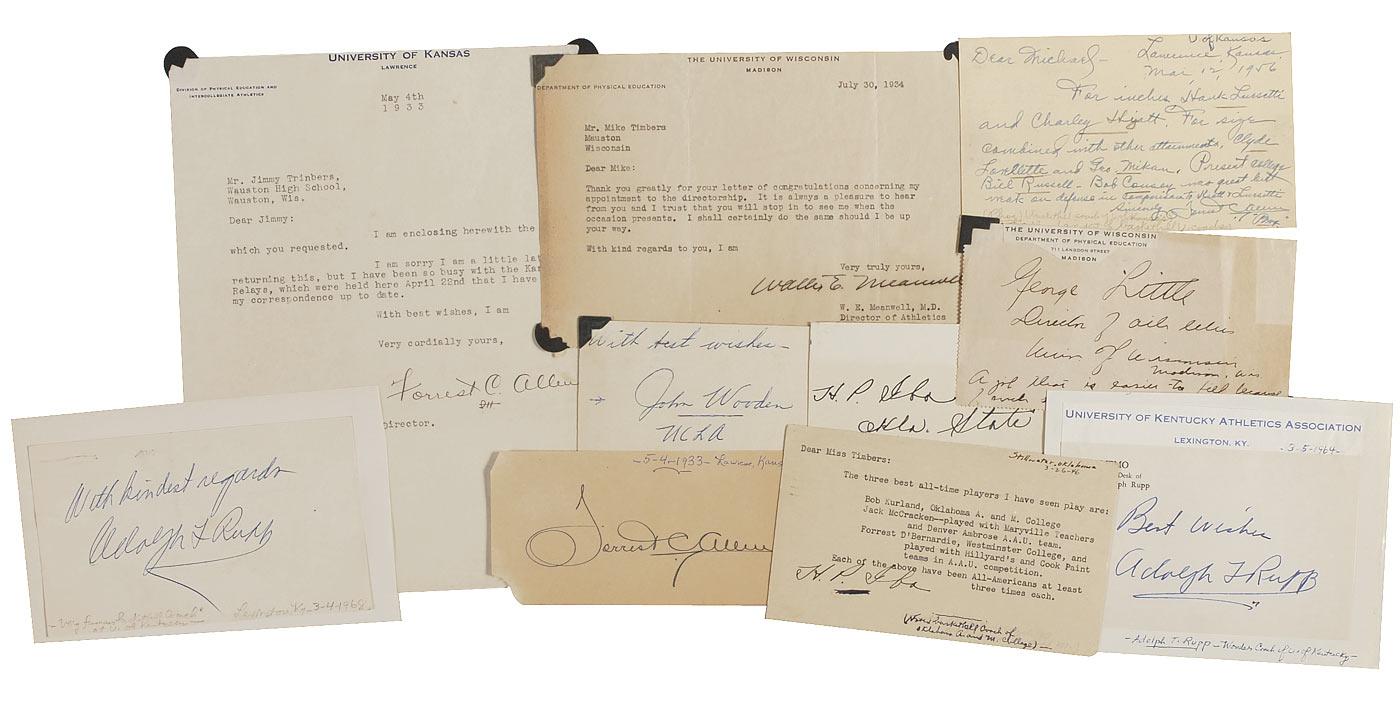 UNIVERSITY OF KANSAS
LAWRENCE
DIVISION OF PHYSICAL EDUCATION AND
INTERCOLLEGIATE ATHLETICS
May 4th
1933
Mr. Jimmy Trinbers,
Wauston High School,
Wauston, Wis.
Dear Jimmy:
I am enclosing herewith the
which you requested.
I am sorry I am a little lat
returning this, but I have been so busy with the Kan
Relays, which were held here April 22nd that I have
my correspondence up to date.
With best wishes, I am
Very cordially yours,
Forrest C. Allen
Director.
THE UNIVERSITY OF WISCONSIN
MADISON
DEPARTMENT OF PHYSICAL EDUCATION
July 30, 1934
Mr. Mike Timbers
Mauston
Wisconsin
Dear Mike:
Thank you greatly for your letter of congratulations concerning my
appointment to the directorship. It is always a pleasure to hear
from you and I trust that you will stop in to see me when the
occasion presents. I shall certainly do the same should I be up
your way.
With kind regards to you, I am
Very truly yours,
Walter E. Meanwell
W. E. Meanwell, M.D.
Director of Athletics
U of Kansas
Dear Michael- Lawrence, Kansas
Mar 12, 1956
For inches Hank Luisetti
and Charley Hyatt. For size
combined with other attainments, Clyde
Lovellette and Geo. Mikan. Present college
Bill Russell - Bob Cousey was great but
weak on defense in comparison to Hyatt & Luisetti
THE UNIVERSITY OF WISCONSIN
DEPARTMENT OF PHYSICAL EDUCATION
711 LANGDON STREET
MADISON
George Little
Director of athletics
Univ of Wisconsin
Madison, Wis.
A job that is easier to tell
With best wishes-
John Wooden
UCLA
H. P. Iba
Okla. State
-5-4-1933- Lawrence, Kans
Forrest C. Allen
With kindest regards
Adolph F Rupp
Lexington Ky-3-4-1968
Dear Miss Timbers:
Stillwater, Oklahoma
3-26-46
The three best all-time players I have seen play are:
Bob Kurland, Oklahoma A. and M. College
Jack McCracken--played with Maryville Teachers
and Denver Ambrose A.A.U. team.
Forrest D'Bernardie, Westminster College, and
played with Hillyard's and Cook Paint
teams in A.A.U. competition.
Each of the above have been All-Americans at least
three times each.
H. P. Iba
(Noted basketball Coach of
Oklahoma A and M. College)-
UNIVERSITY OF KENTUCKY ATHLETICS ASSOCIATION
LEXINGTON, KY.
-3-5-1964-
MO
Desk of
lph Rupp
Best Wishes
Adolph F Rupp
-Adolph T. Rupp - Wonder Coach of U. of Kentucky-